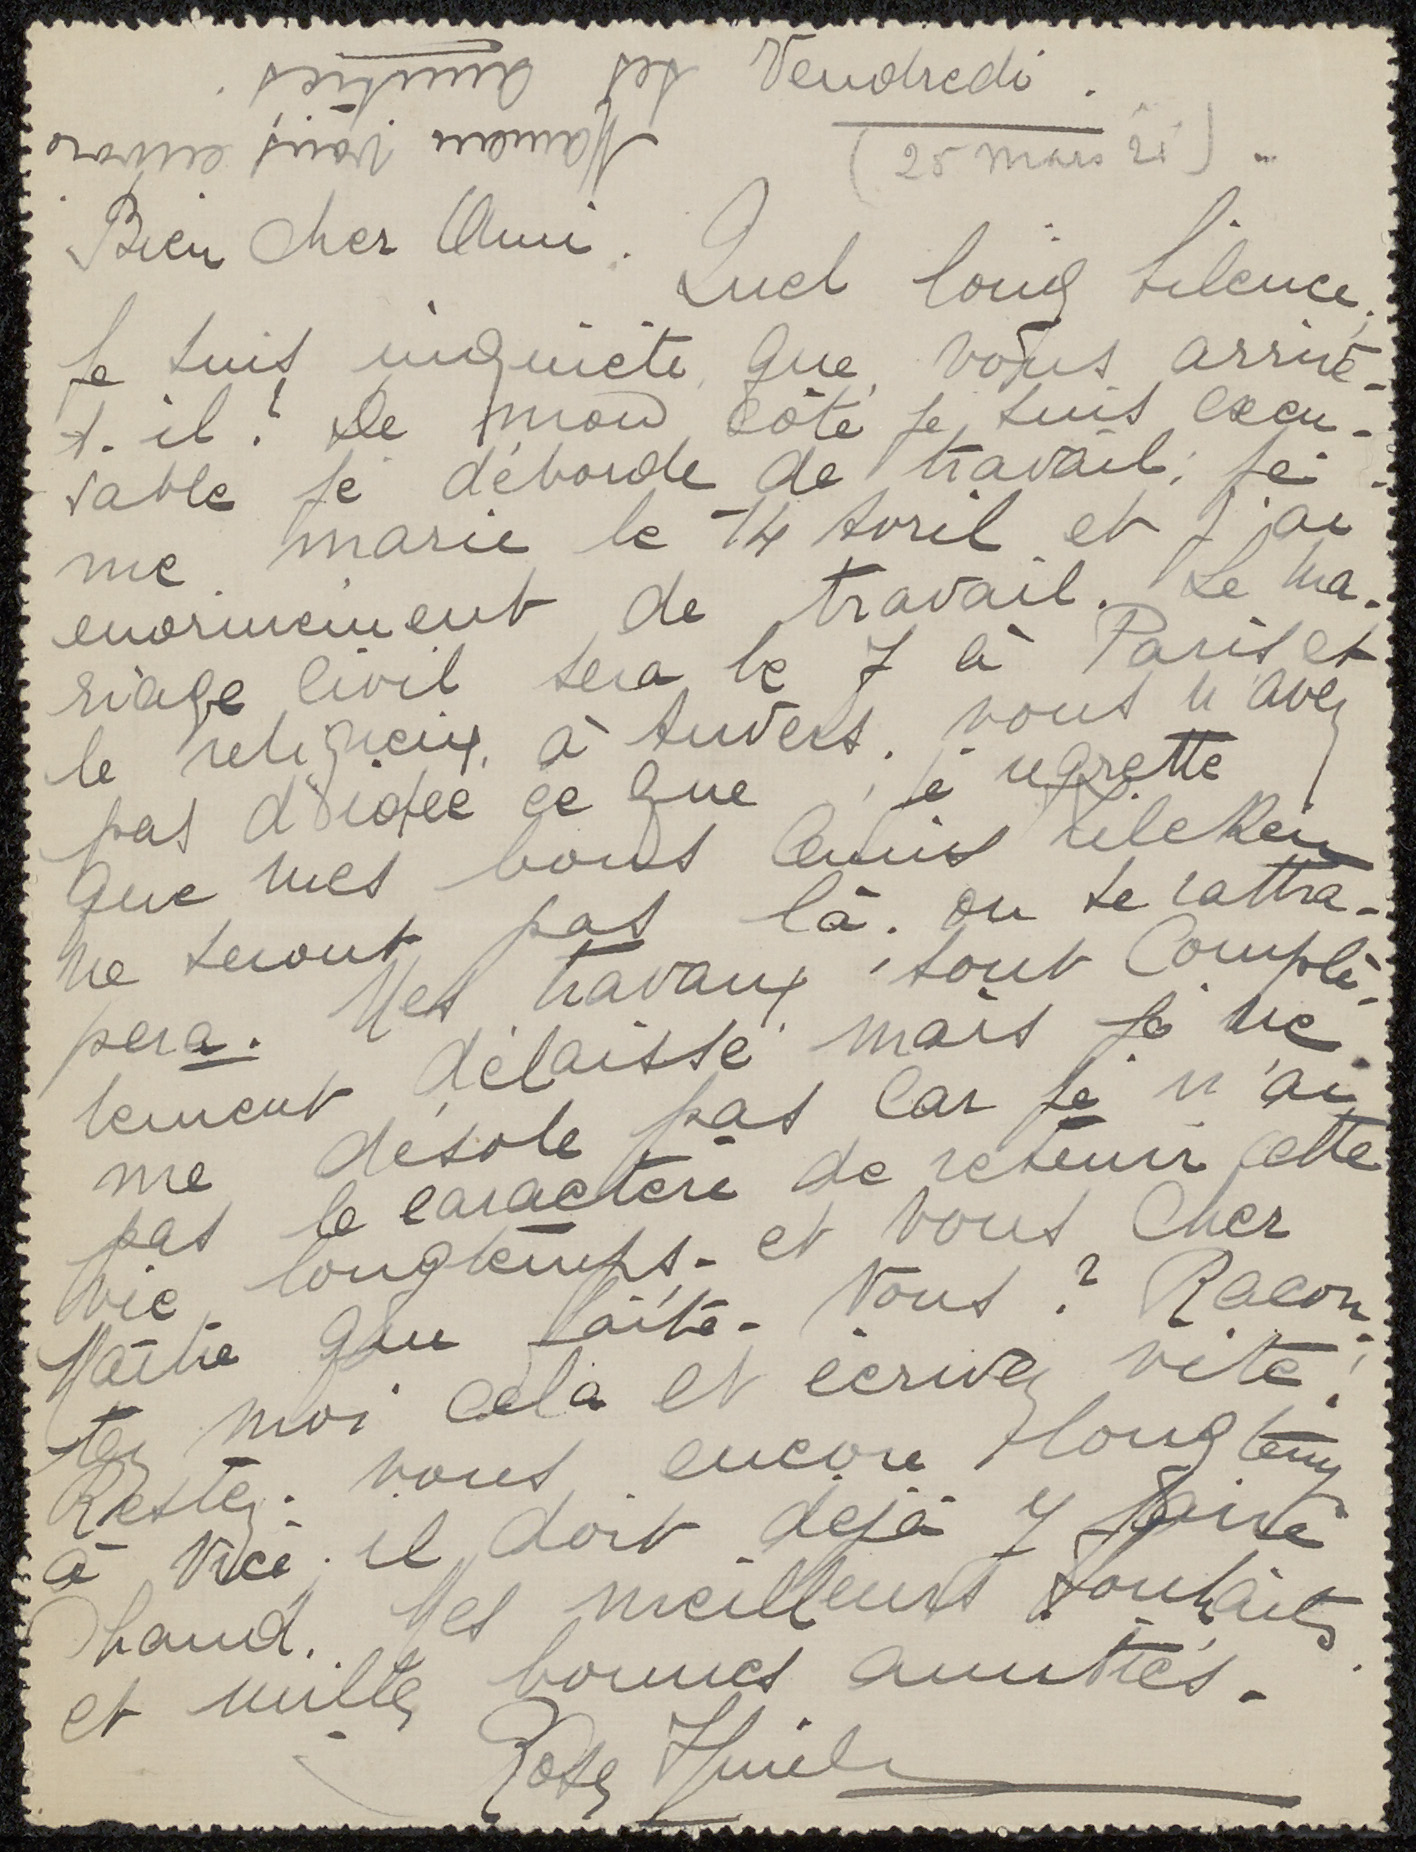 Vendredi.
(25 mars 21)
Bien cher Ami.
Quel long silence,
Je suis inquiète, que vous arrive-
t-il? De mon côté je suis excu-
sable je déborde de travail; je
me marie le 14 Avril et j'ai
enormement de travail. Le ma-
riage civil sera le 7 à Paris et
le religieux, à Anvers. vous n'avez
pas d'idée ce que je regrette
que mes bons Amis Zilcken
ne seront pas là. on se rattra-
pera. Mes travaux sont complè-
tement délaissé mais je ne
me désole pas car je n'ai
pas le caractère de retenir cette
vie longtemps. et vous cher
Maître que faite-vous? Racon-
tez moi cela et écrivez vite!
Restez-vous encore longtemps
à Nice. il doit dejà y faire
chaud. Mes meilleurs souhaits
et milles bonnes amitiés.
Rosa
Maman vous envoie
ses amitiés.